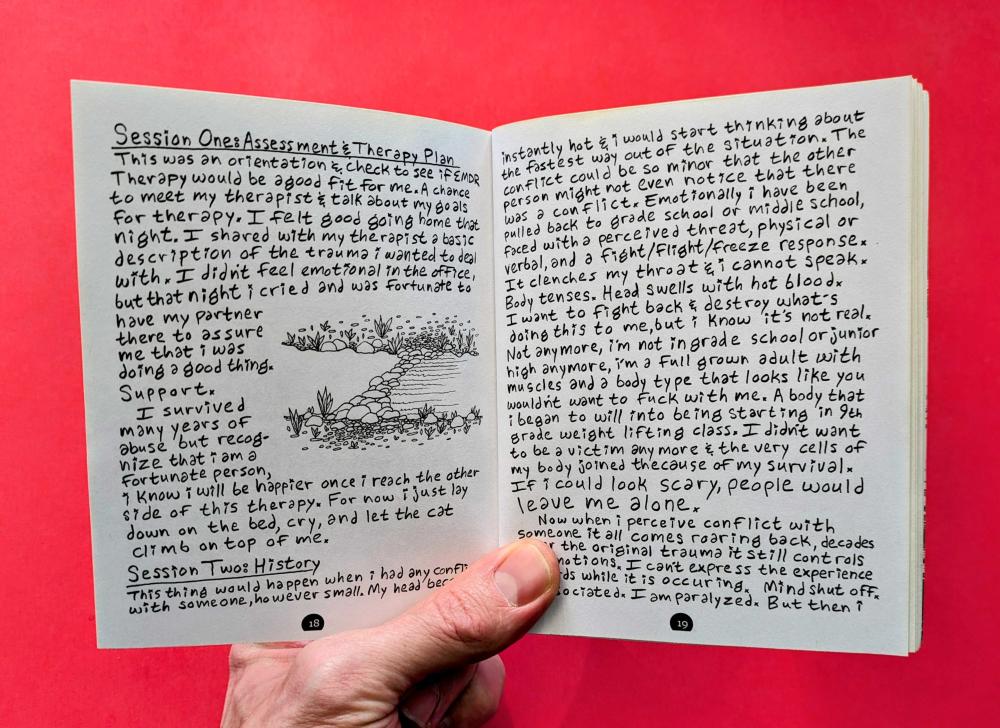 Session One: Assessment & Therapy Plan
This was an orientation & check to see if EMDR
Therapy would be a good fit for me. A chance
to meet my therapist & talk about my goals
for therapy. I felt good going home that
night. I shared with my therapist a basic
description of the trauma i wanted to deal
with. I didn't feel emotional in the office,
but that night i cried and was fortunate to
have my partner
there to assure
me that i was
doing a good thing.
Support.
I survived
many years of
abuse but recog-
nize that i am a
fortunate person,
i know i will be happier once i reach the other
side of this therapy. For now i just lay
down on the bed, cry, and let the cat
climb on top of me.
Session Two: History
This thing would happen when i had any
with someone, however small. My head
18
instantly hot & i would start thinking about
the fastest way out of the situation. The
conflict could be so minor that the other
person might not even notice that there
was a conflict. Emotionally i have been
pulled back to grade school or middle school,
faced with a perceived threat, physical or
verbal, and a fight/flight/freeze response.
It clenches my throat & i cannot speak.
Body tenses. Head swells with hot blood.
I want to fight back & destroy what's
doing this to me, but i know it's not real.
Not anymore, i'm not in grade school or junior
high anymore, i'm a full grown adult with
muscles and a body type that looks like you
wouldn't want to fuck with me. A body that
i began to will into being starting in 9th
grade weight lifting class. I didn't want
to be a victim anymore & the very cells of
my body joined the cause of my survival.
If i could look scary, people would
leave me alone.
Now when i perceive conflict with
someone it all comes roaring back, decades
the original trauma it still controls
I can't express the experience
while it is occuring. Mind shut off.
I am paralyzed. But then i
19